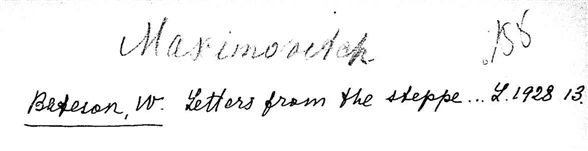 Maximovitch 155
Bateson, W. Letters from the steppe... L. 1928 13.